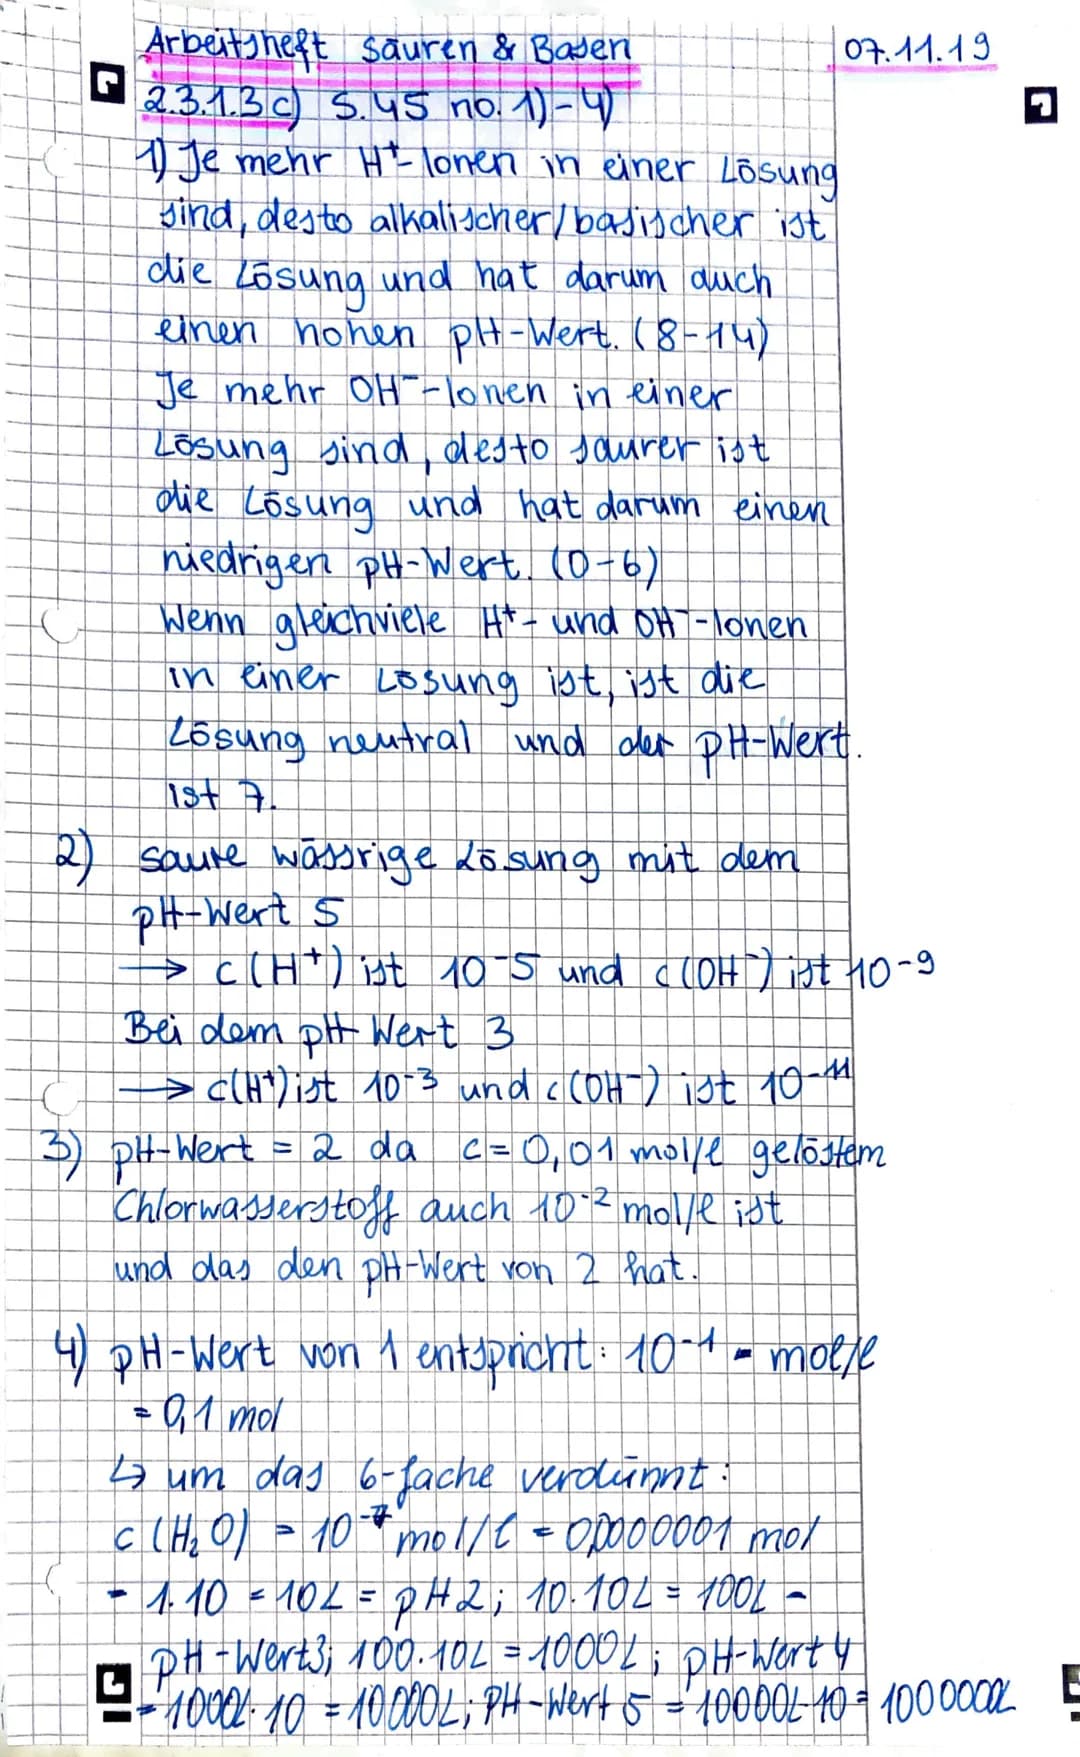 Arbeitsheft Säuren & Basen 07.11.19
2.3.1.3 c) S.45 no. 1)-4)
1) Je mehr H⁺-Ionen in einer Lösung
sind, desto alkalischer/basischer ist
die Lösung und hat darum auch
einen hohen pH-Wert. (8-14)
Je mehr OH⁻-Ionen in einer
Lösung sind, desto saurer ist
die Lösung und hat darum einen
niedrigen pH-Wert. (0-6)
Wenn gleichviele H⁺- und OH⁻-Ionen
in einer Lösung ist, ist die
Lösung neutral und der pH-Wert.
ist 7.
2) saure wässrige Lösung mit dem
pH-Wert 5
→ c(H⁺) ist 10⁻⁵ und c(OH⁻) ist 10⁻⁹
Bei dem pH Wert 3
→ c(H⁺) ist 10⁻³ und c(OH⁻) ist 10⁻¹¹
3) pH-Wert = 2 da c = 0,01 mol/l gelöstem
Chlorwasserstoff auch 10⁻² mol/l ist
und das den pH-Wert von 2 hat.
4) pH-Wert von 1 entspricht: 10⁻¹ - mol/l
= 0,1 mol
↳ um das 6-fache verdünnt:
c (H₂O) = 10⁻⁷ mol/l = 0,0000001 mol
- 1·10 = 10L = pH 2; 10·10L = 100L -
pH-Wert 3; 100·10L = 1000L; pH-Wert 4
= 1000L·10 = 10000L; pH-Wert 5 = 10000L·10 = 1000000L